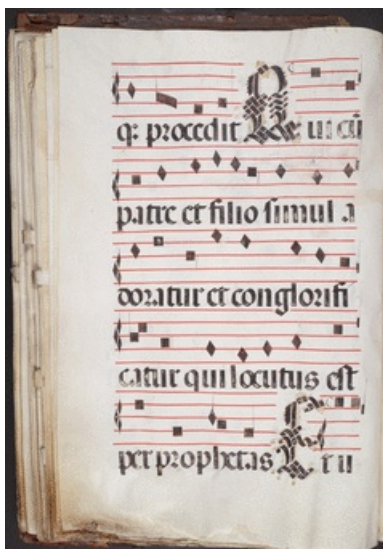 q; procedit Qui cū
patre et filio simul a
doratur et conglorifi
catur qui locutus est
per prophetas Et u